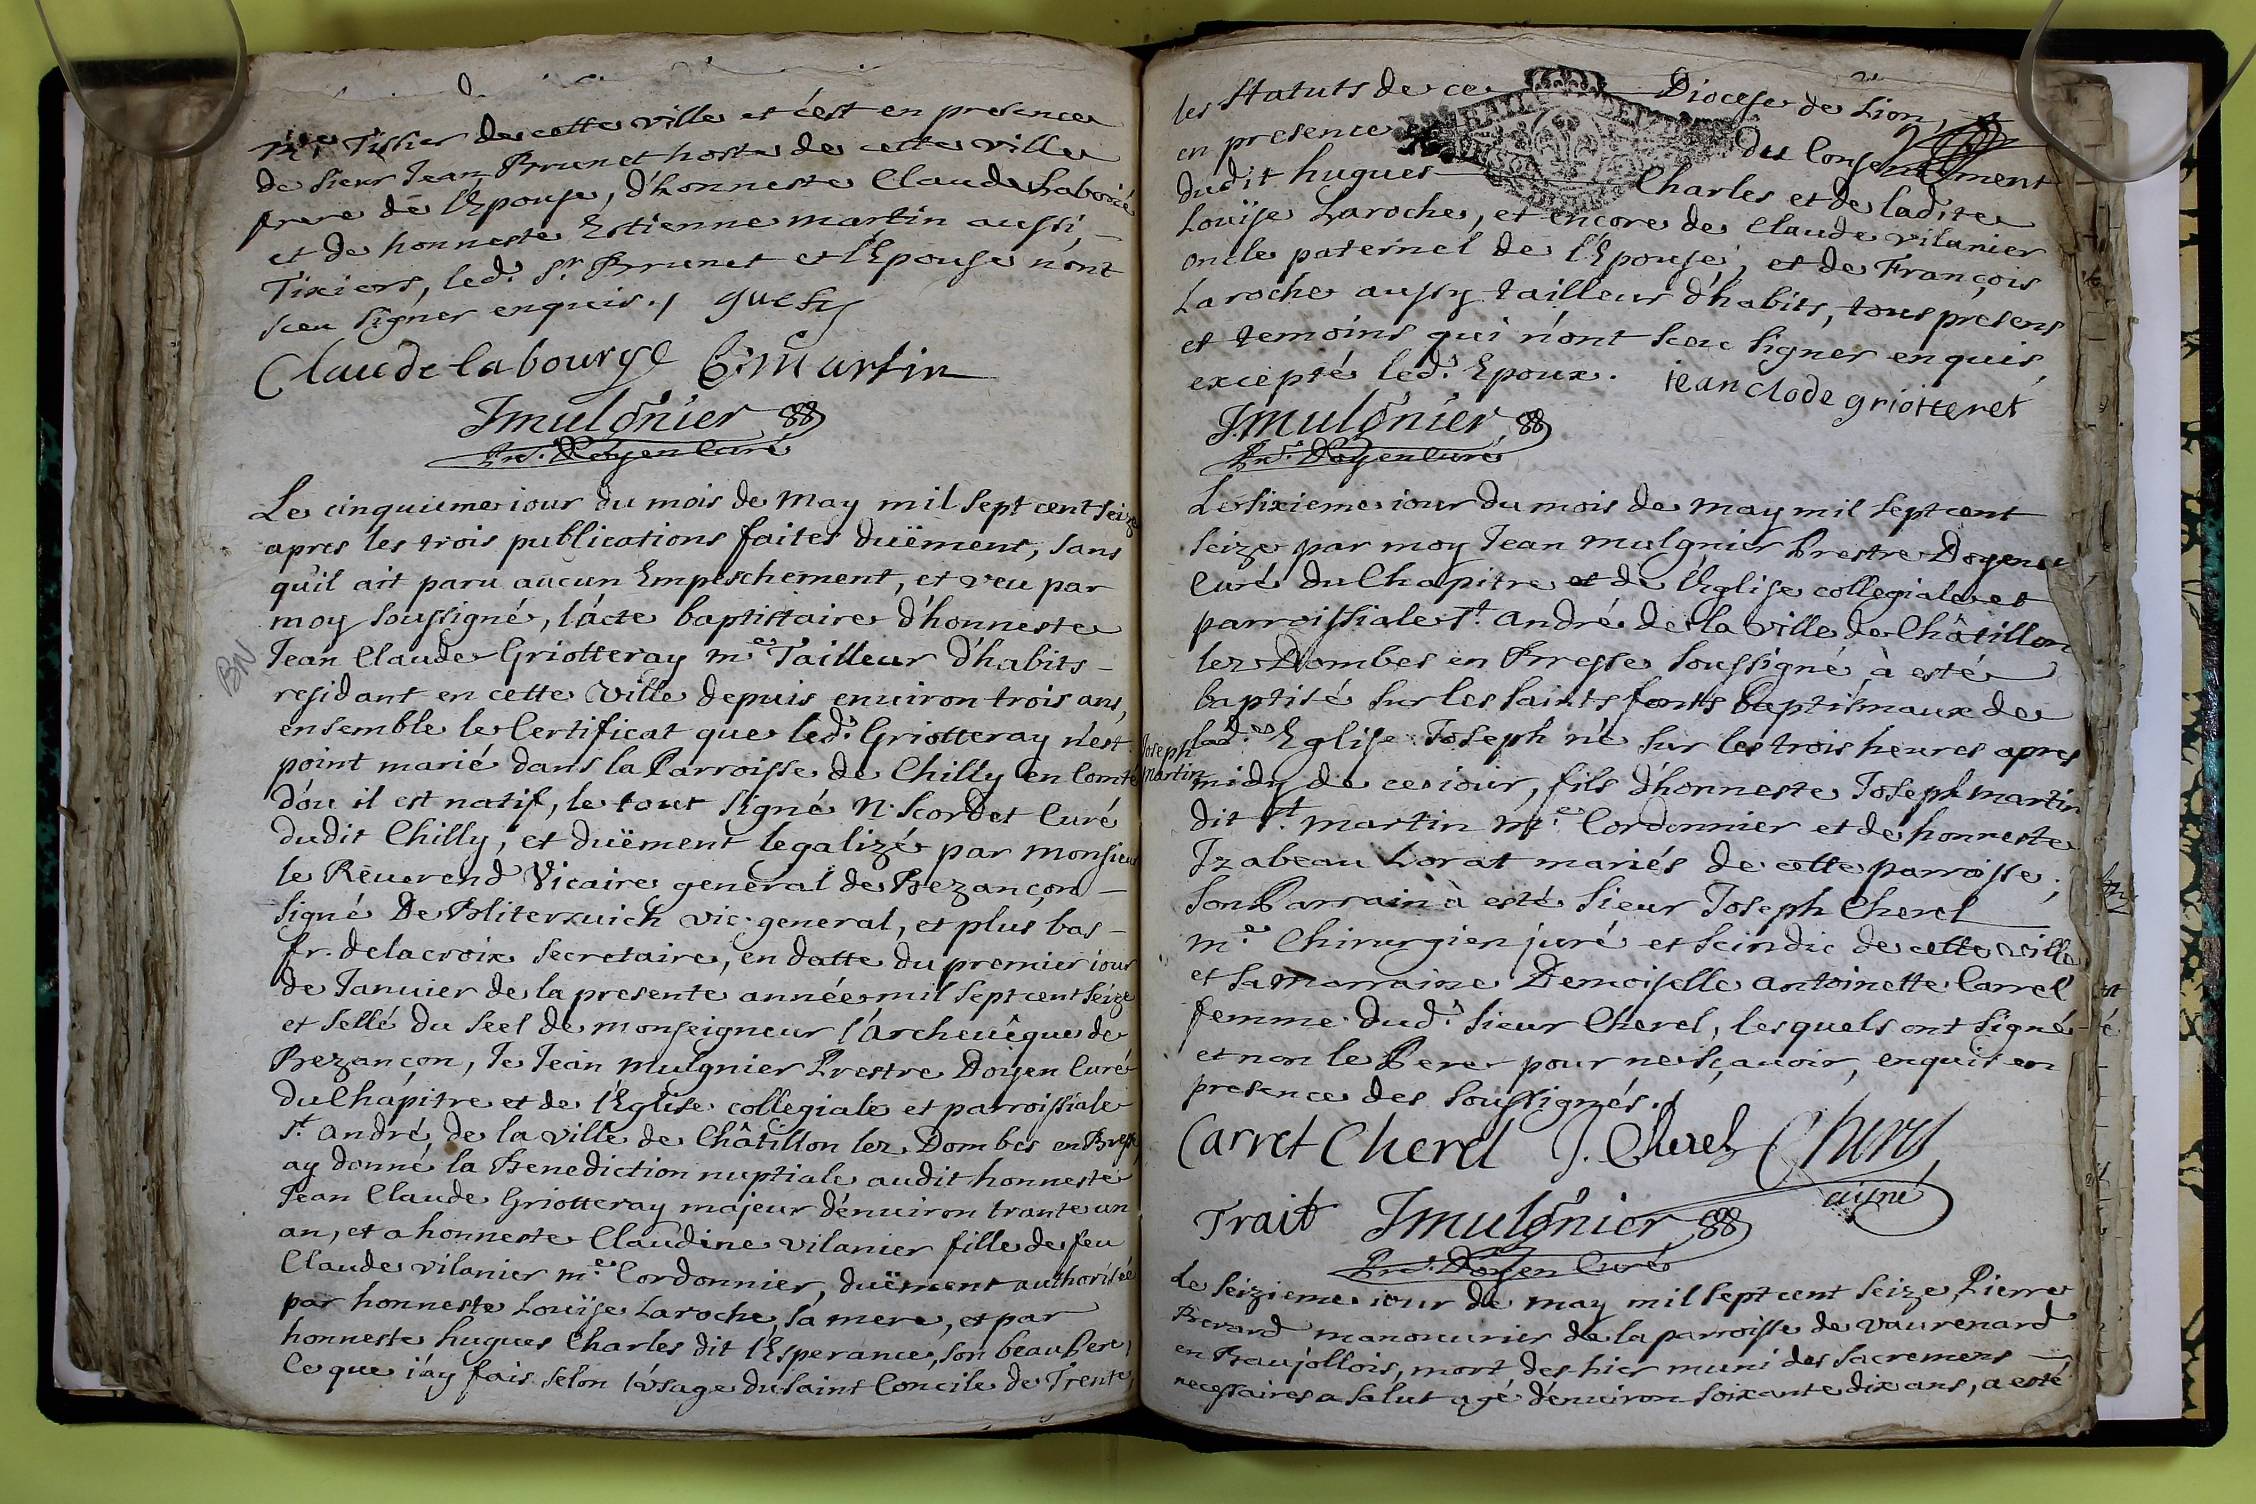 me Tissier de cette ville et c'est en presence
de sieur Jean Brunet hoste de cette ville
frere de l'Epouse, d'honneste Claude Laborié
et de honneste Estienne martin aussi,
Tixiers, led. Sr. Brunet et l'Epouse n'ont
sceu signer enquis./
Claude labourye E. martin
Jmulgnier
Pre. Doyen Curé
Le cinquieme iour du mois de may mil sept cent seize
apres les trois publications faites duëment, sans
qu'il ait paru aucun Empeschement, et veu par
moy soussigné, l'acte baptistaire d'honneste
BN
Jean Claude Griotteray me. Tailleur d'habits -
residant en cette ville depuis enuiron trois ans,
ensemble le Certificat que led. Griotteray n'est
point marié dans la Parroisse de Chilly en Comté
d'ou il est natif, le tout signé N. Scordet Curé
dudit Chilly, et duëment legalizé par monsieur
le Reuerend Vicaire general de Bezançon -
signé De Bliterxuich vic. general, et plus bas -
fr. delacroix secretaire, en datte du premier iour
de Januier de la presente année mil sept cent seize
et sellé du seel de monseigneur l'Archeuêque de
Bezançon, Je Jean mulgnier Prestre Doyen Curé
du Chapitre et de l'Eglise collegiale et parroissiale
St. André de la ville de Châtillon lez Dombes en Bresse
ay donné la Benediction nuptiale audit honneste
Jean Claude Griotteray majeur d'enuiron trante un
an, et a honneste Claudine vilanier fille de feu
Claude vilanier me. Cordonnier, duëment authorisée
par honneste Louïse Laroche, sa mere, et par
honneste hugues Charles dit l'Esperance, son beau Pere,
Ce que i'ay fais selon l'usage du saint Concile de Trente,
les statuts de ce Diocese de Lion,
en presence et du Consentement
dudit hugues Charles et de ladite
Louïse Laroche, et encore de Claude vilanier
oncle paternel de l'Epouse, et de François
Laroche aussy tailleur d'habits, tous presens
et temoins qui n'ont sceu signer enquis,
excepté led. Epoux. iean clode griotteret
Jmulgnier
Pre. Doyen Curé
Le sixieme iour du mois de may mil sept cent
seize par moy Jean mulgnier Prestre Doyen
Curé du Chapitre et de l'Eglise collegiale et
parroissiale St. André de la ville de Châtillon
lez Dombes en Bresse soussigné à esté
baptisé sur les saints fonts baptismaux de
Joseph martin
lad. Eglise Joseph né sur les trois heures apres
midy de ce iour, fils d'honneste Joseph martin
dit St. martin me. Cordonnier et de honneste
Izabeau Lorat mariés de cette parroisse;
son Parrain à esté sieur Joseph Cherel
me. Chirurgien juré et scindic de cette ville
et sa marraine Demoiselle Antoinette Carrel
femme dud. sieur Cherel, lesquels ont signé
et non le Pere pour ne sçauoir, enquis en
presence des soussignés./
Carret Cherel J. Cherel Cherel
aisné
Trait Jmulgnier
Pre. Doyen Curé
Le seizieme iour de may mil sept cent seize, Pierre
Brevard manouurier de la parroisse de vaurenard
en Beaujollois, mort des hier muni des sacremens
necessaires a salut agé d'enuiron soixante dix ans, a esté